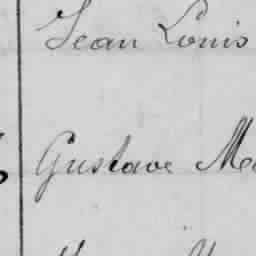 Jean Louis
Gustave